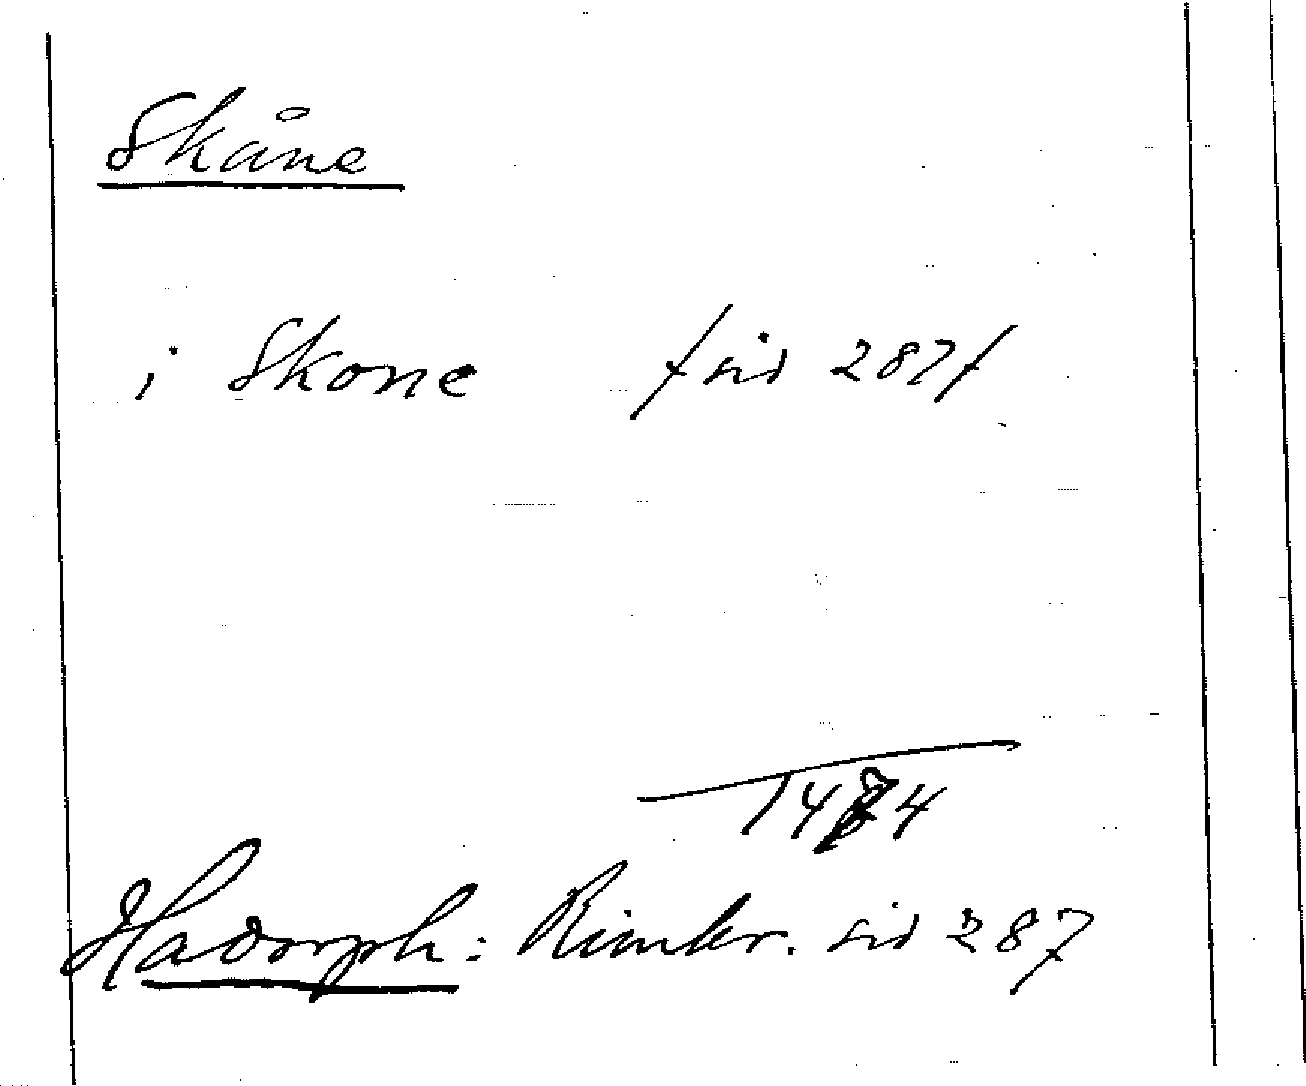 Skåne
i Skone /sid 287/
1484
Hadorph: Rimkr. sid 287